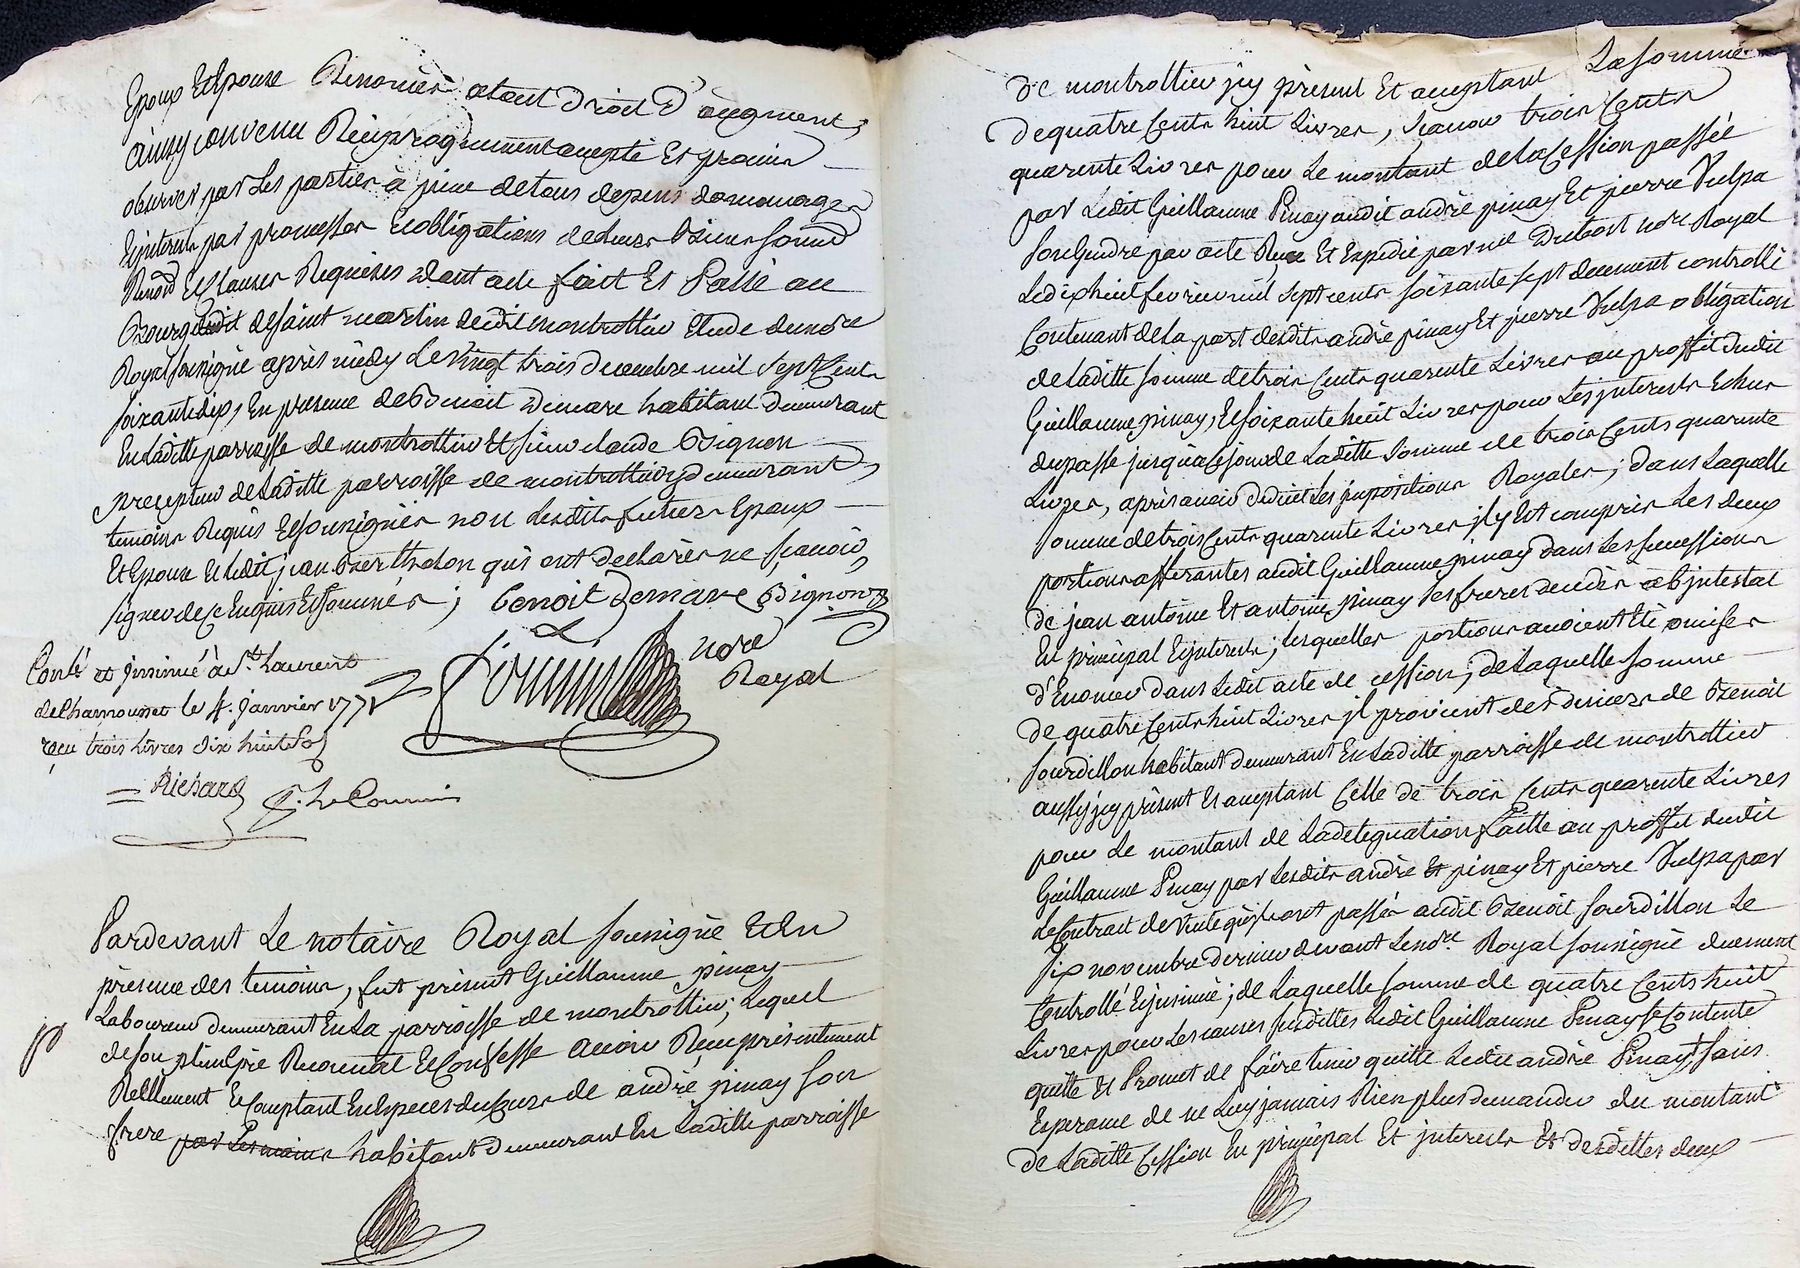 Epoux et Epouse Renoncer atout droit d'augment,
ainsy convenu Reciproquement accepté et promis
observer par Les parties à peine de tous depens dommages
Et interests par promesses et obligations de leurs Biens soumis
Renond et clauses Requises dont acte fait Et Passé au
Bourg dudit de saint martin dudit montrottier Etude du nore
Royal soussigné après midy Le vingt trois decembre mil sept Cents
soixante dix, En presence de Benoit demare habitant demeurant
En Laditte parroisse de montrottier Et sieur claude Bignon
precepteur de Laditte parroisse de montrottier y demeurant,
temoins Requis Et soussignés non Lesdits futurs Epoux
Et Epouse et Ledit jean Berthelon qui ont declarés ne sçavoir
signer de ce Enquis Et sommés; benoit demare Bignon
nore
Royal
Conlé et insinué à St. Laurent
de Chamousset le 4. janvier 1771
reçu trois livres dix huit sols
Richard
Pardevant Le notaire Royal soussigné Et En
présence des temoins, fut présent Guillaume pinay
Laboureur demeurant En La parroisse de montrottier; Lequel
de son plein gré Reconnoit Et Confesse avoir Reçu présentement
Réellement Et Comptant En Especes du Cours de andré pinay son
frere par Les mains habitant demeurant En Laditte parroisse
de montrottier jcy présent Et acceptant La somme
de quatre Cents huit Livres, sçavoir trois Cents
quarente Livres pour Le montant de la Cession passée
par Ledit Guillaume Pinay audit andré pinay Et pierre Vulpa
son Gendre par acte Reçu Et Expedié par me Dubost nore Royal
Le dix huit fevrier mil sept cents soixante sept duement controllé
Contenant de la part desdits andré pinay Et pierre Vulpa obligation
de Laditte somme de trois Cents quarente Livres au proffit dudit
Guillaume pinay, Et soixante huit Livres pour Les interests Echus
du passé jusqu'à Ce jour de Laditte somme de trois Cents quarente
Livres, apres avoir deduit Les impositions Royales; dans Laquelle
somme de trois Cents quarente Livres jl y Est compris Les deux
portions afferantes audit Guillaume pinay dans Les successions
de jean antoine Et antoine pinay ses freres decedés ab intestat
En principal Et interests; lesquelles portions avoient Eté omises
d'Enoncer dans Ledit acte de cession, de Laquelle somme
de quatre Cents huit Livres jl provient des deniers de Benoit
sourdillon habitant demeurant En Laditte parroisse de montrottier
aussy jcy présent Et acceptant Celle de trois Cents quarente Livres
pour Le montant de La delegation faitte au proffit dudit
Guillaume Pinay par Lesdits andré Et pinay Et pierre Vulpa par
Le Contrat de vente qu'ils ont passés audit Benoit sourdillon Le
six novembre dernier devant Le nore Royal soussigné duement
Controllé Et insinué; de Laquelle somme de quatre Cents huit
Livres pour Les causes susdittes Ledit Guillaume Pinay se Contente
quitte Et Promet de faire tenir quitte Ledit andré Pinay, sans
Esperance de ne Luy jamais Rien plus demander du montant
de Laditte Cession En principal Et interests Et desdittes deux